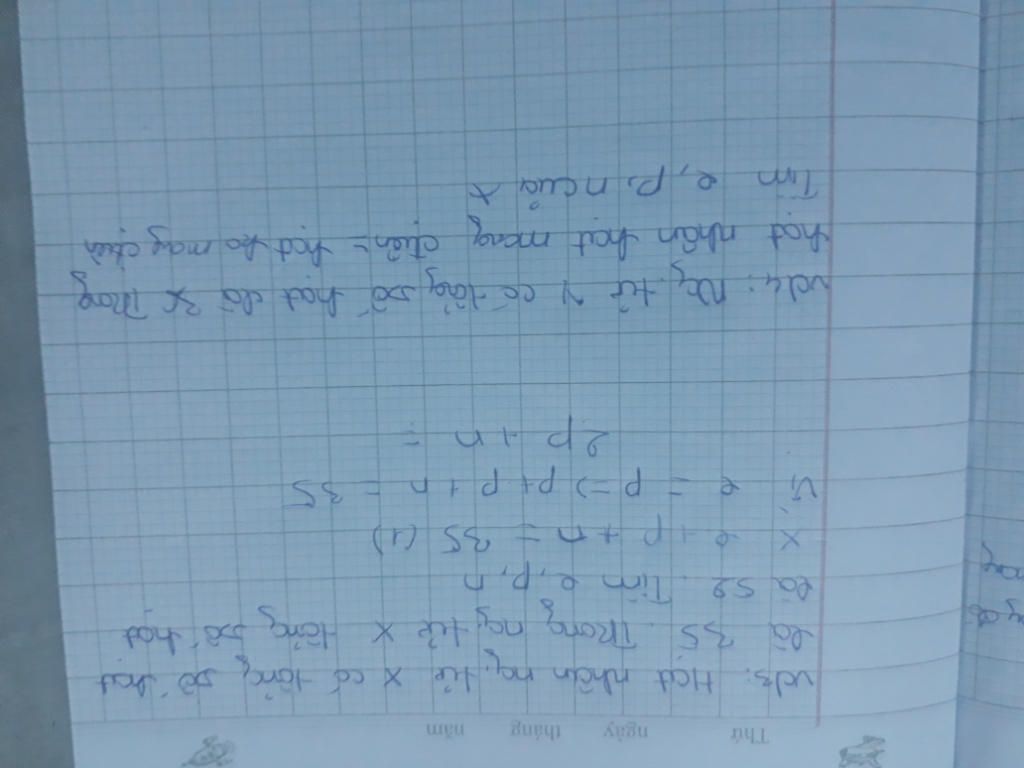 Thứ ngày tháng năm
vd3: Hạt nhân ng. tử X có tổng số hạt
là 35. Trong ng tử X tổng số hạt
là 52. Tìm e, p, n
X e + p + n = 35 (1)
Vì e = p => p + p + n = 35
2p + n =
vd4: Ng tử X có tổng số hạt là 36 Trong
hạt nhân hạt mang điện = hạt ko mang điện
Tìm e, p, n của X